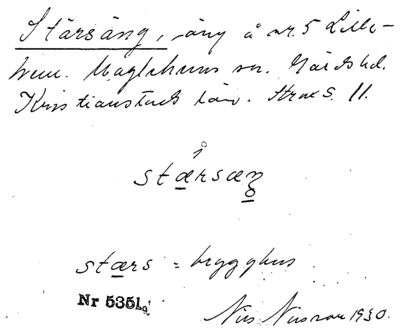 Stärsäng, äng å nr 5 Lille-
hem. Maglehems sn. Gärds hd.
Kristianstads län. Ark s. 11.
stærsæŋ
stærs = brygghus
Nr 5351.
Nils Nilsson 1930.